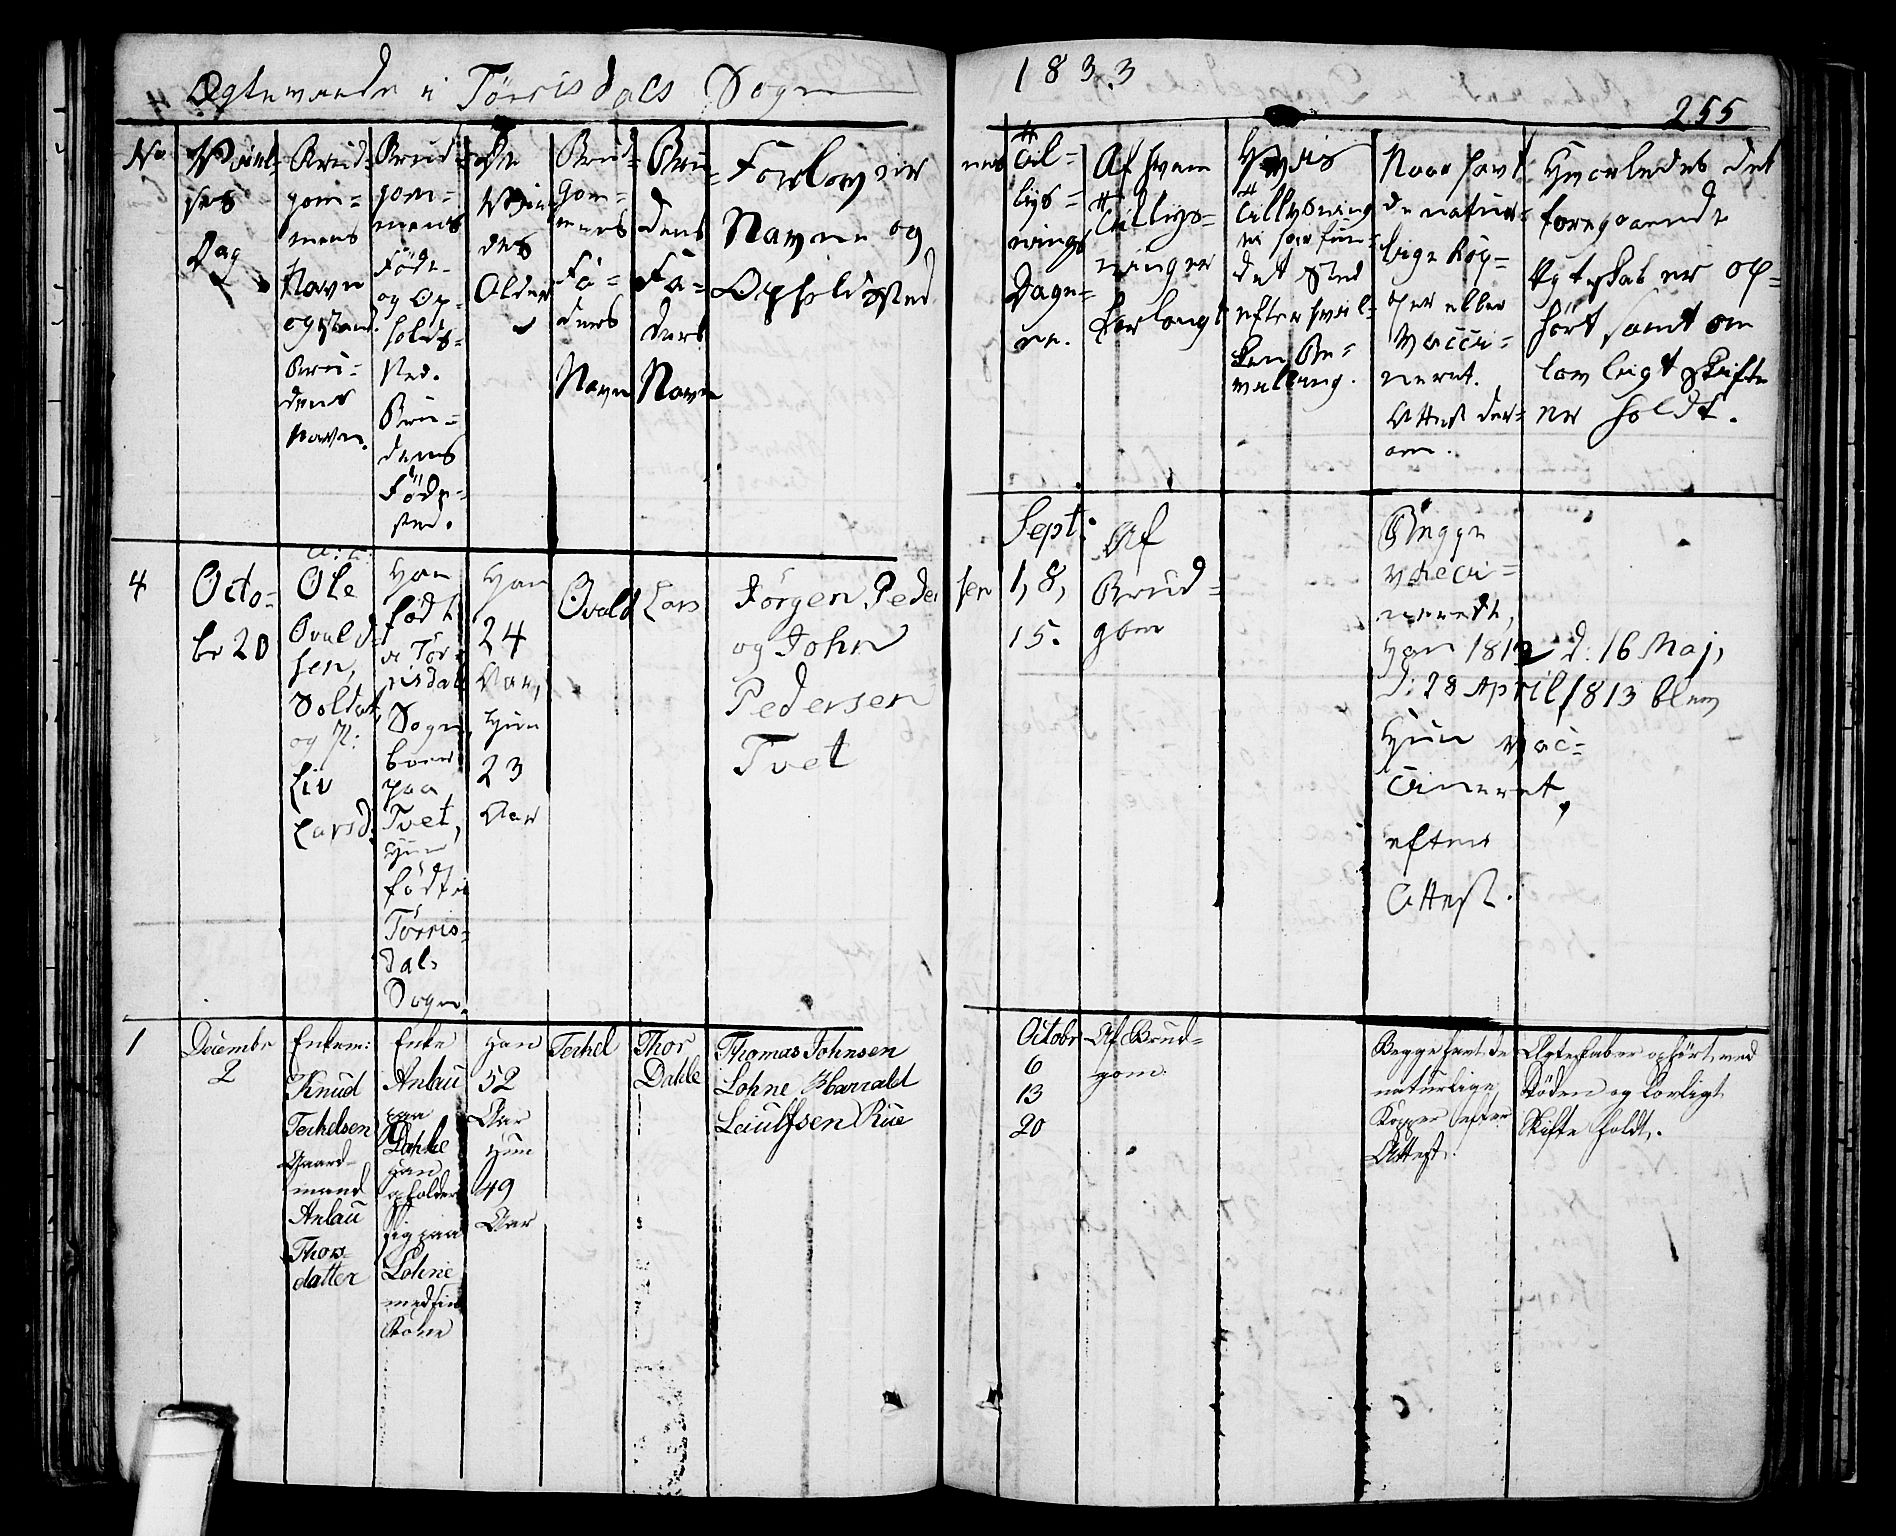 Ægteviede i Tørrisdals Sogn
1833
255
No
Vielses
Dag
Brud-
gom-
mens
Navn
og Stand.
Bru-
dens
Navn.
Brud-
gom-
mens
Føde-
og Op-
holds-
sted.
Bru-
dens
Føde-
sted.
De
Vie-
des
Alder
Brud-
gom-
mens
Fa-
ders
Navn
Bru-
dens
Fa-
ders
Navn
Forlover
Navne og
Opholdssted
nes
Til-
lys-
nings
Dage-
ne.
Af hvem
Tillys-
ninger
forlangt
Hvis
Tillysning
ei har fun-
det Sted
efter hvil-
ken Be-
villing.
Naar havt
de natur-
lige Kop-
per eller
Vacci-
neret.
Attest der-
om.
Hvorledes det
foregaaende
Ægteskab er op-
hørt samt om
lovligt Skifte
er holdt.
4
Octo-
br 20
Ole
Ovald-
sen,
Soldat,
og P:
Liv
Larsd.
Han
født
i Tør-
risdals
Sogn,
boer
paa
Tvet,
Hun
født i
Tørris-
dals
Sogn.
Han
24
Aar,
Hun
23
Aar
Ovald
Lars
Jörgen Peder
og John
Pedersen
Tvet
sen
Sept:
1, 8,
15.
Af
Brud-
gom
Begge
vacci-
nerede,
Han 1812 d: 16 Maj,
d: 28 April 1813 blev
Hun vac-
cineret,
efter
Attest.
1
Decembr
2
Enkem:
Knud
Terkelsen
Gaard-
mand
Anlau
Thors-
datter
Enke
Anlau
paa
Dahle
Han
opholder
sig paa
Lohne
med sin
Kone
Han
52
Aar
Hun
49
Aar
Terkel
Thor
Dahle
Thomas Johnsen
Lohne Harrald
Laulfsen Rue
Octobr
6
13
20
Af Brud-
gom
Begge havt de
naturlige
Kopper efter
Attest.
Ægteskaber ophørt ved
Døden og Lovligt
Skifte holdt.